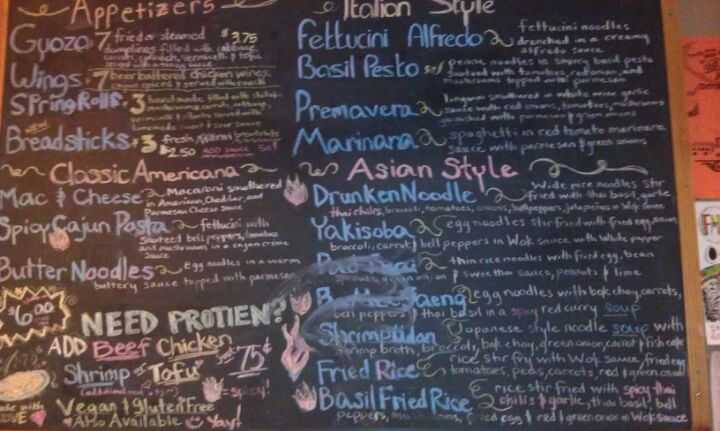 Appetizers
Gyoza 7 fried or steamed $3.75
dumplings filled with cabbage,
carrots, vermicelli & tofu
Wings 7 beer battered chicken wings,
Spring Rolls 3 hand made filled with
NEW!
Breadsticks 3 Fresh Warm breadsticks
$2.50 ADD sauce 50¢
Classic Americana
Mac & Cheese Macaroni smothered
in American, Cheddar, and
Parmesan Cheese Sauce
Spicy Cajun Pasta fettucini with
sauteed bell peppers, tomatoes
and mushrooms in a cajun creme
sauce
Butter Noodles egg noodles in a warm
buttery sauce topped with parmesan
$6.00
NEED PROTIEN?
ADD Beef Chicken
Shrimp or Tofu 75¢
=spicy!
made with LOVE
Vegan & Gluten Free
Also Available Yay!
Italian Style
Fettucini Alfredo fettucini noodles
drenched in a creamy
alfredo sauce
Basil Pesto penne noodles in savory basil pesto
sauteed with tomatoes, red onion, and
mushrooms topped with parmesan
Premavera linguini smothered in white wine garlic
sauce with red onions, tomatoes, mushrooms
garnished with parmesan & green onions
Marinara spaghetti in red tomato marinara
sauce with parmesan & green onions
Asian Style
Drunken Noodle Wide rice noodles stir
fried with thai basil, garlic
thai chilis, broccoli, tomatoes, onions, bell peppers, jalapeños in Wok sauce
Yakisoba egg noodles stir fried with fried egg, onion,
broccoli, carrot & bell peppers in Wok sauce with White pepper
thin rice noodles with fried egg, bean
sprouts, green onion & sweet thai sauce, peanuts & lime
egg noodles with bok choy, carrots,
bell peppers & thai basil in a spicy red curry soup
Shrimp Udon Japanese style noodle soup with
shrimp broth, broccoli, bok choy, green onion, carrot & fish cake
Fried Rice rice stir fry with Wok sauce, fried egg
tomatoes, peas, carrots, red & green onion
Basil Fried Rice rice stir fried with spicy thai
chilis & garlic, thai basil, bell
peppers, mushrooms, fried egg & red & green onion in Wok sauce